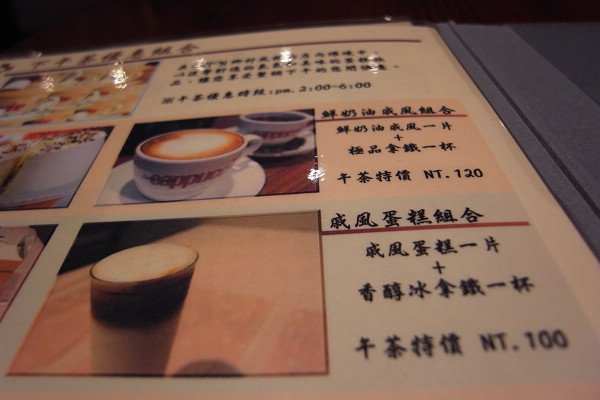 下午茶優惠組合
※午茶優惠時段:pm. 2:00-6:00
鮮奶油戚風組合
鮮奶油戚風一片
+
極品拿鐵一杯
午茶特價 NT.120
cappuc
戚風蛋糕組合
戚風蛋糕一片
+
香醇冰拿鐵一杯
午茶特價 NT.100